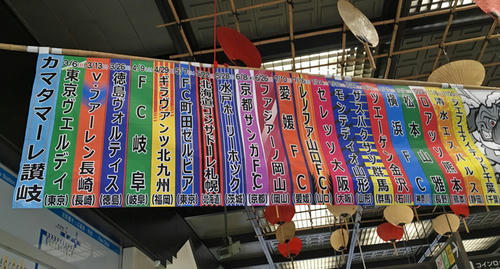 カマタマーレ讃岐
3/6
東京ヴェルディ
(東京)
3/13
V・ファーレン長崎
(長崎)
3/26
徳島ヴォルティス
(徳島)
4/9
FC岐阜
(岐阜)
4/29
ギラヴァンツ北九州
(福岡)
FC町田ゼルビア
(東京)
北海道コンサドーレ札幌
(北海道)
水戸ホーリーホック
(茨城)
6/8
京都サンガF.C.
(京都)
ファジアーノ岡山
(岡山)
愛媛FC
(愛媛)
レノファ山口FC
(山口)
セレッソ大阪
(大阪)
モンテディオ山形
(山形)
ザスパクサツ群馬
(群馬)
ツエーゲン金沢
(石川)
横浜FC
(神奈川)
松本山雅FC
(長野)
ロアッソ熊本
(熊本)
清水エスパルス
(静岡)
ジェフユナイテッド千葉
コインロ